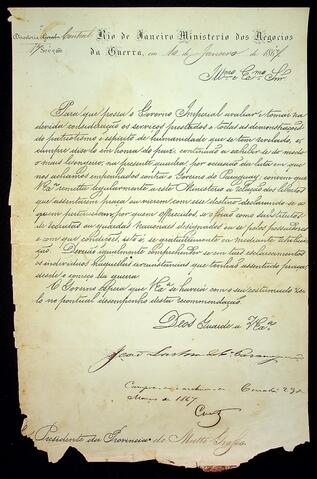 Directoria Central
1ª Secção
Rio de Janeiro Ministerio dos Negocios
da Guerra, em 10 de Janeiro de 1867
Illmo. e Exmo. Snr.
Para que possa o Governo Imperial avaliar e tomar na
devida consideração os serviços prestados e todas as demonstrações
de patriotismo e espirito de humanidade que se tem revelado, e
cumpre dizel-o em honra do paiz, continuão a exhibir-se do modo
o mais lisongeiro na presente quadra por occasião da luta em que
nos achamos empenhados contra o Governo do Paraguay; convem que
V. Exª. remetta regularmente a este Ministerio a relação dos libertos
que assentárem praça ou vierem com esse destino, declarando-se a
quem pertencião, por quem offerecidos e se o forão como substitutos
de recrutas ou guardas Nacionaes designados ou se pelos senhores
e com que condições, isto é se gratuitamente ou mediante retribui
ção. Deverão igualmente comprehender-se em taes esclarecimentos
os individuos naquellas circunstancias que tenhão assentado praça
desde o começo da guerra.
O Governo espera que V. Exª. se haverá com o seu costumado ze-
lo no pontual desempenho desta recommendação.
Deos Guarde a V. Exª.
João Lustosa da Cª. Paranaguá
Cumpra-se Cuiabá 29 de
Março de 1867
Presidente da Provincia de Matto Grosso